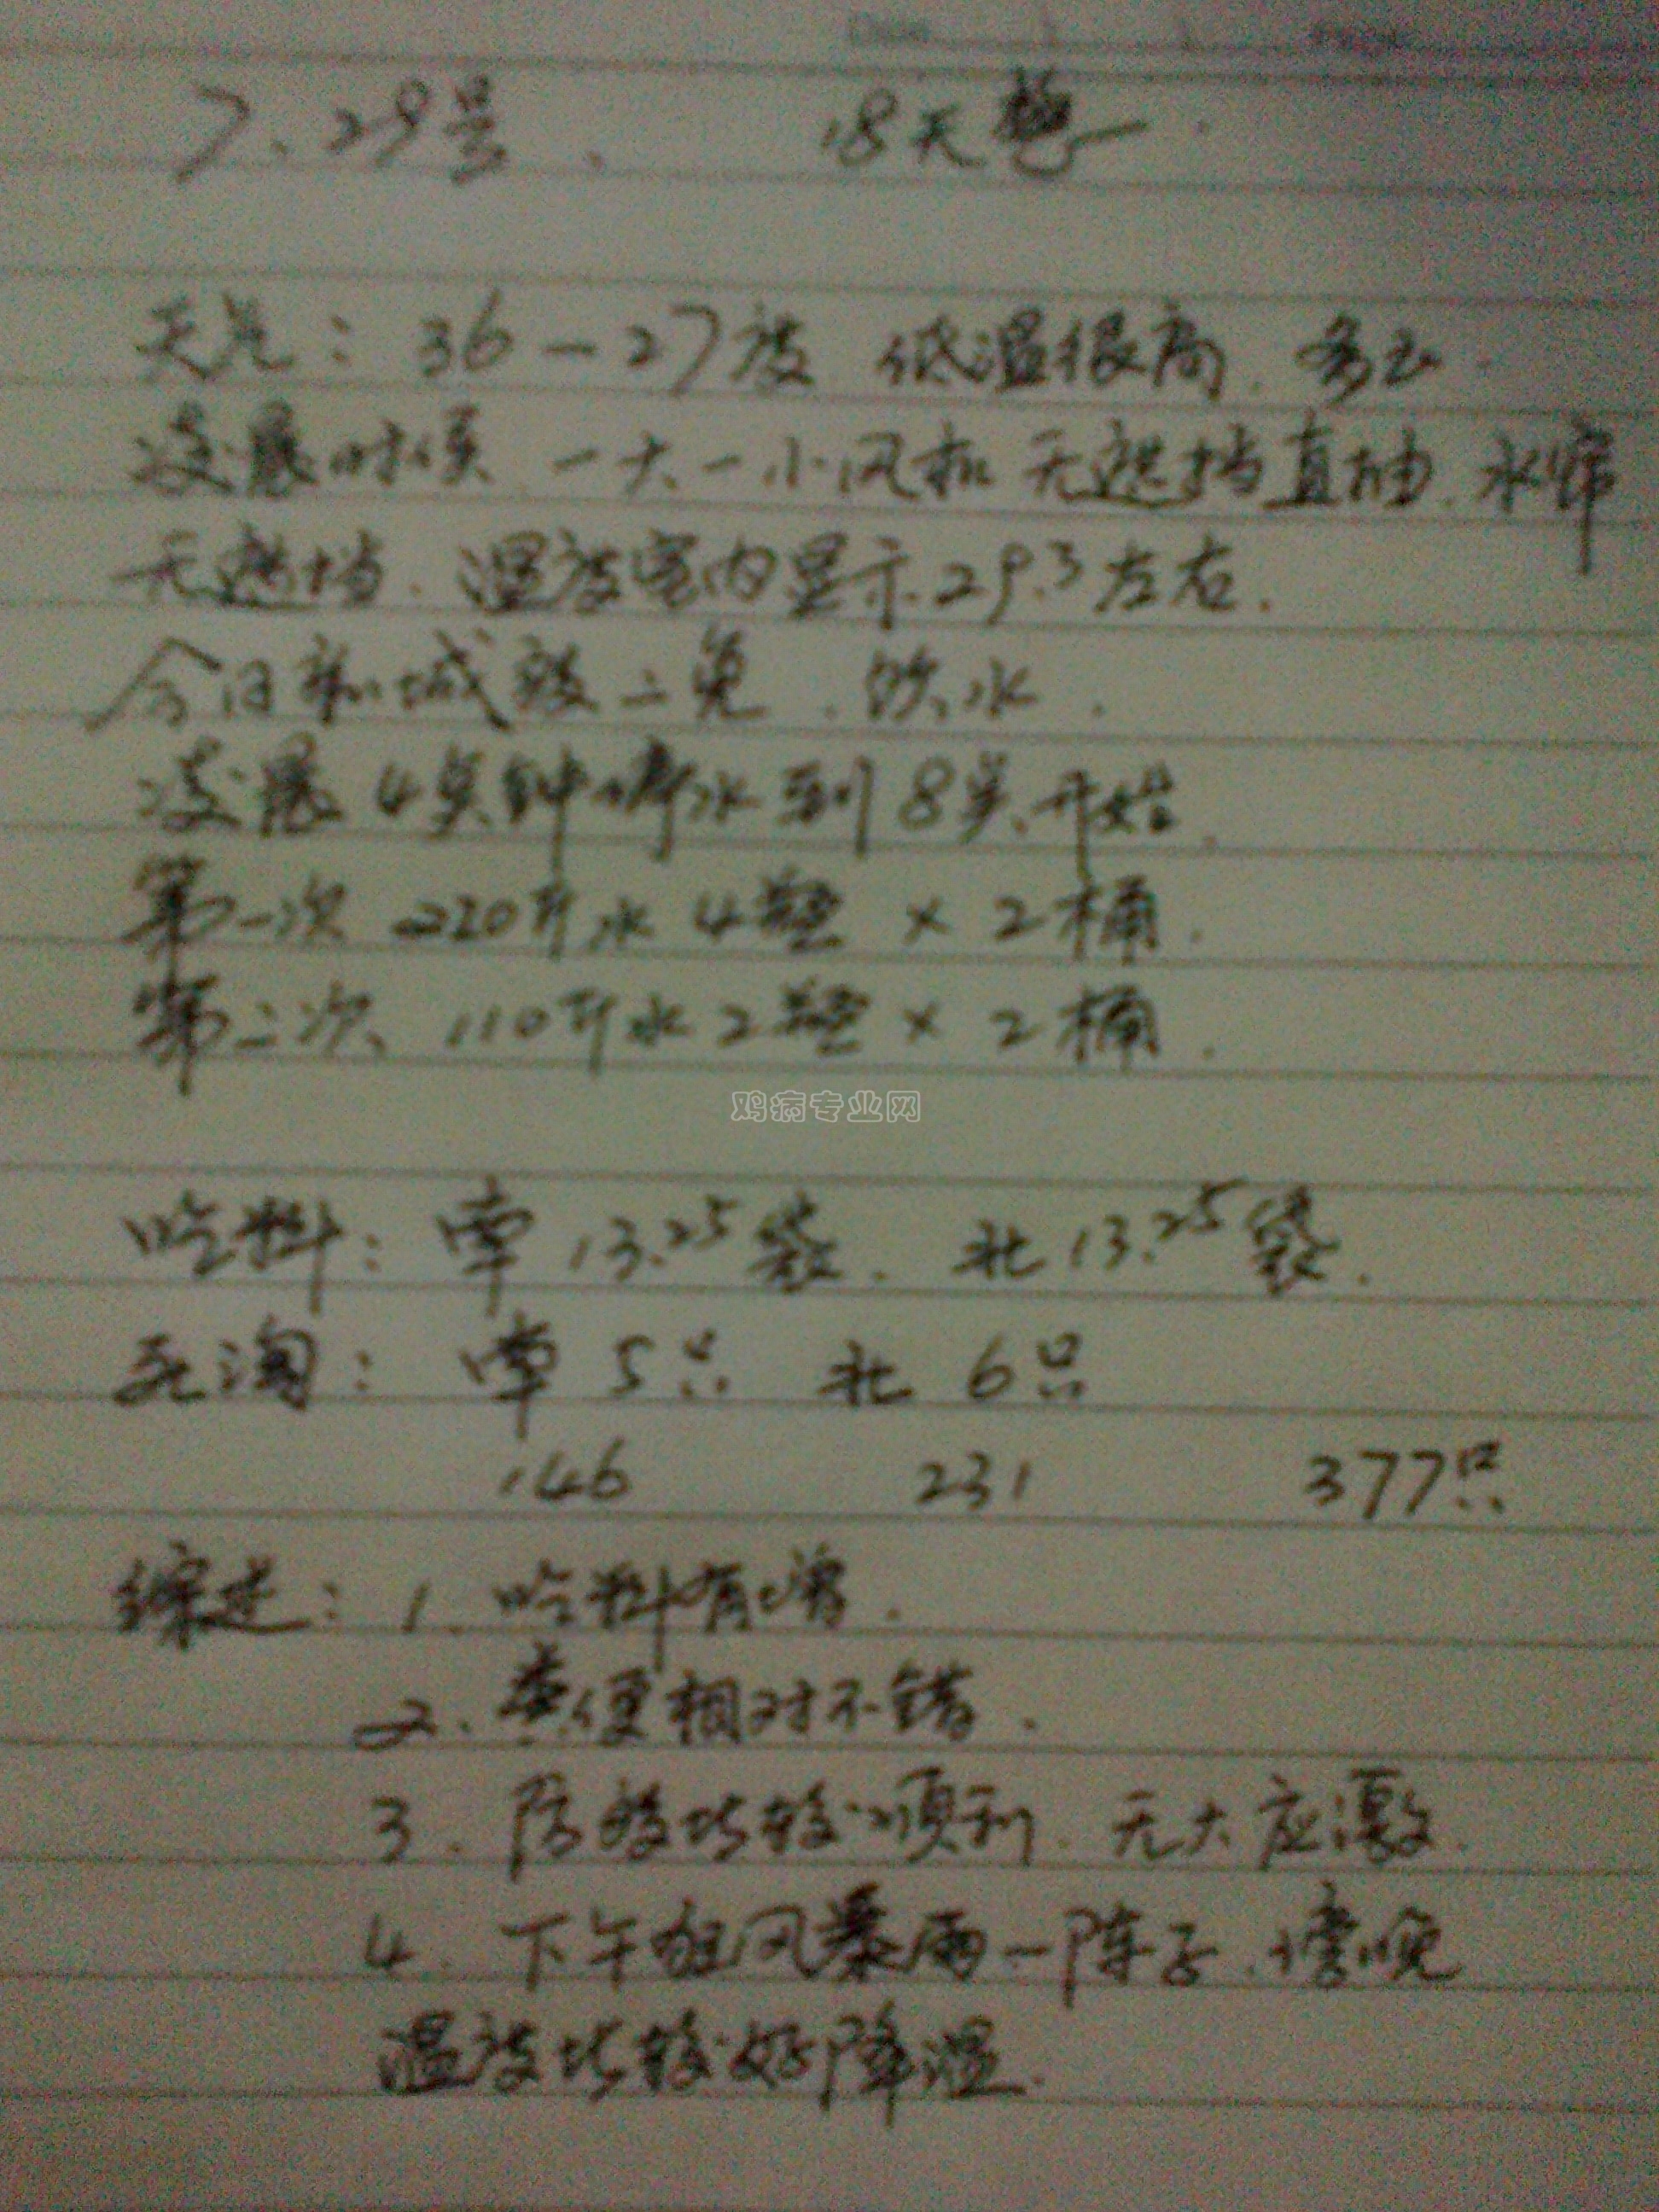 Date
7、29号、 18天整.
天气：36－27度 低温很高. 多云.
凌晨时候 一大一小风机 无遮挡直抽. 水帘
无遮挡. 温度室内显示29.3左右.
今日新城疫二免. 饮水.
凌晨4点钟停水到8点开始.
第一次 220升水4瓶 × 2桶.
第二次 110升水2瓶 × 2桶.
鸡病专业网
吃料：南13.25袋. 北13.25袋.
死淘：南 5只 北 6只
146 231 377只
综述：1. 吃料有增.
2. 粪便相对不错.
3. 防疫比较顺利. 无大应激.
4. 下午狂风暴雨一阵子. 傍晚
温度比较好降温.